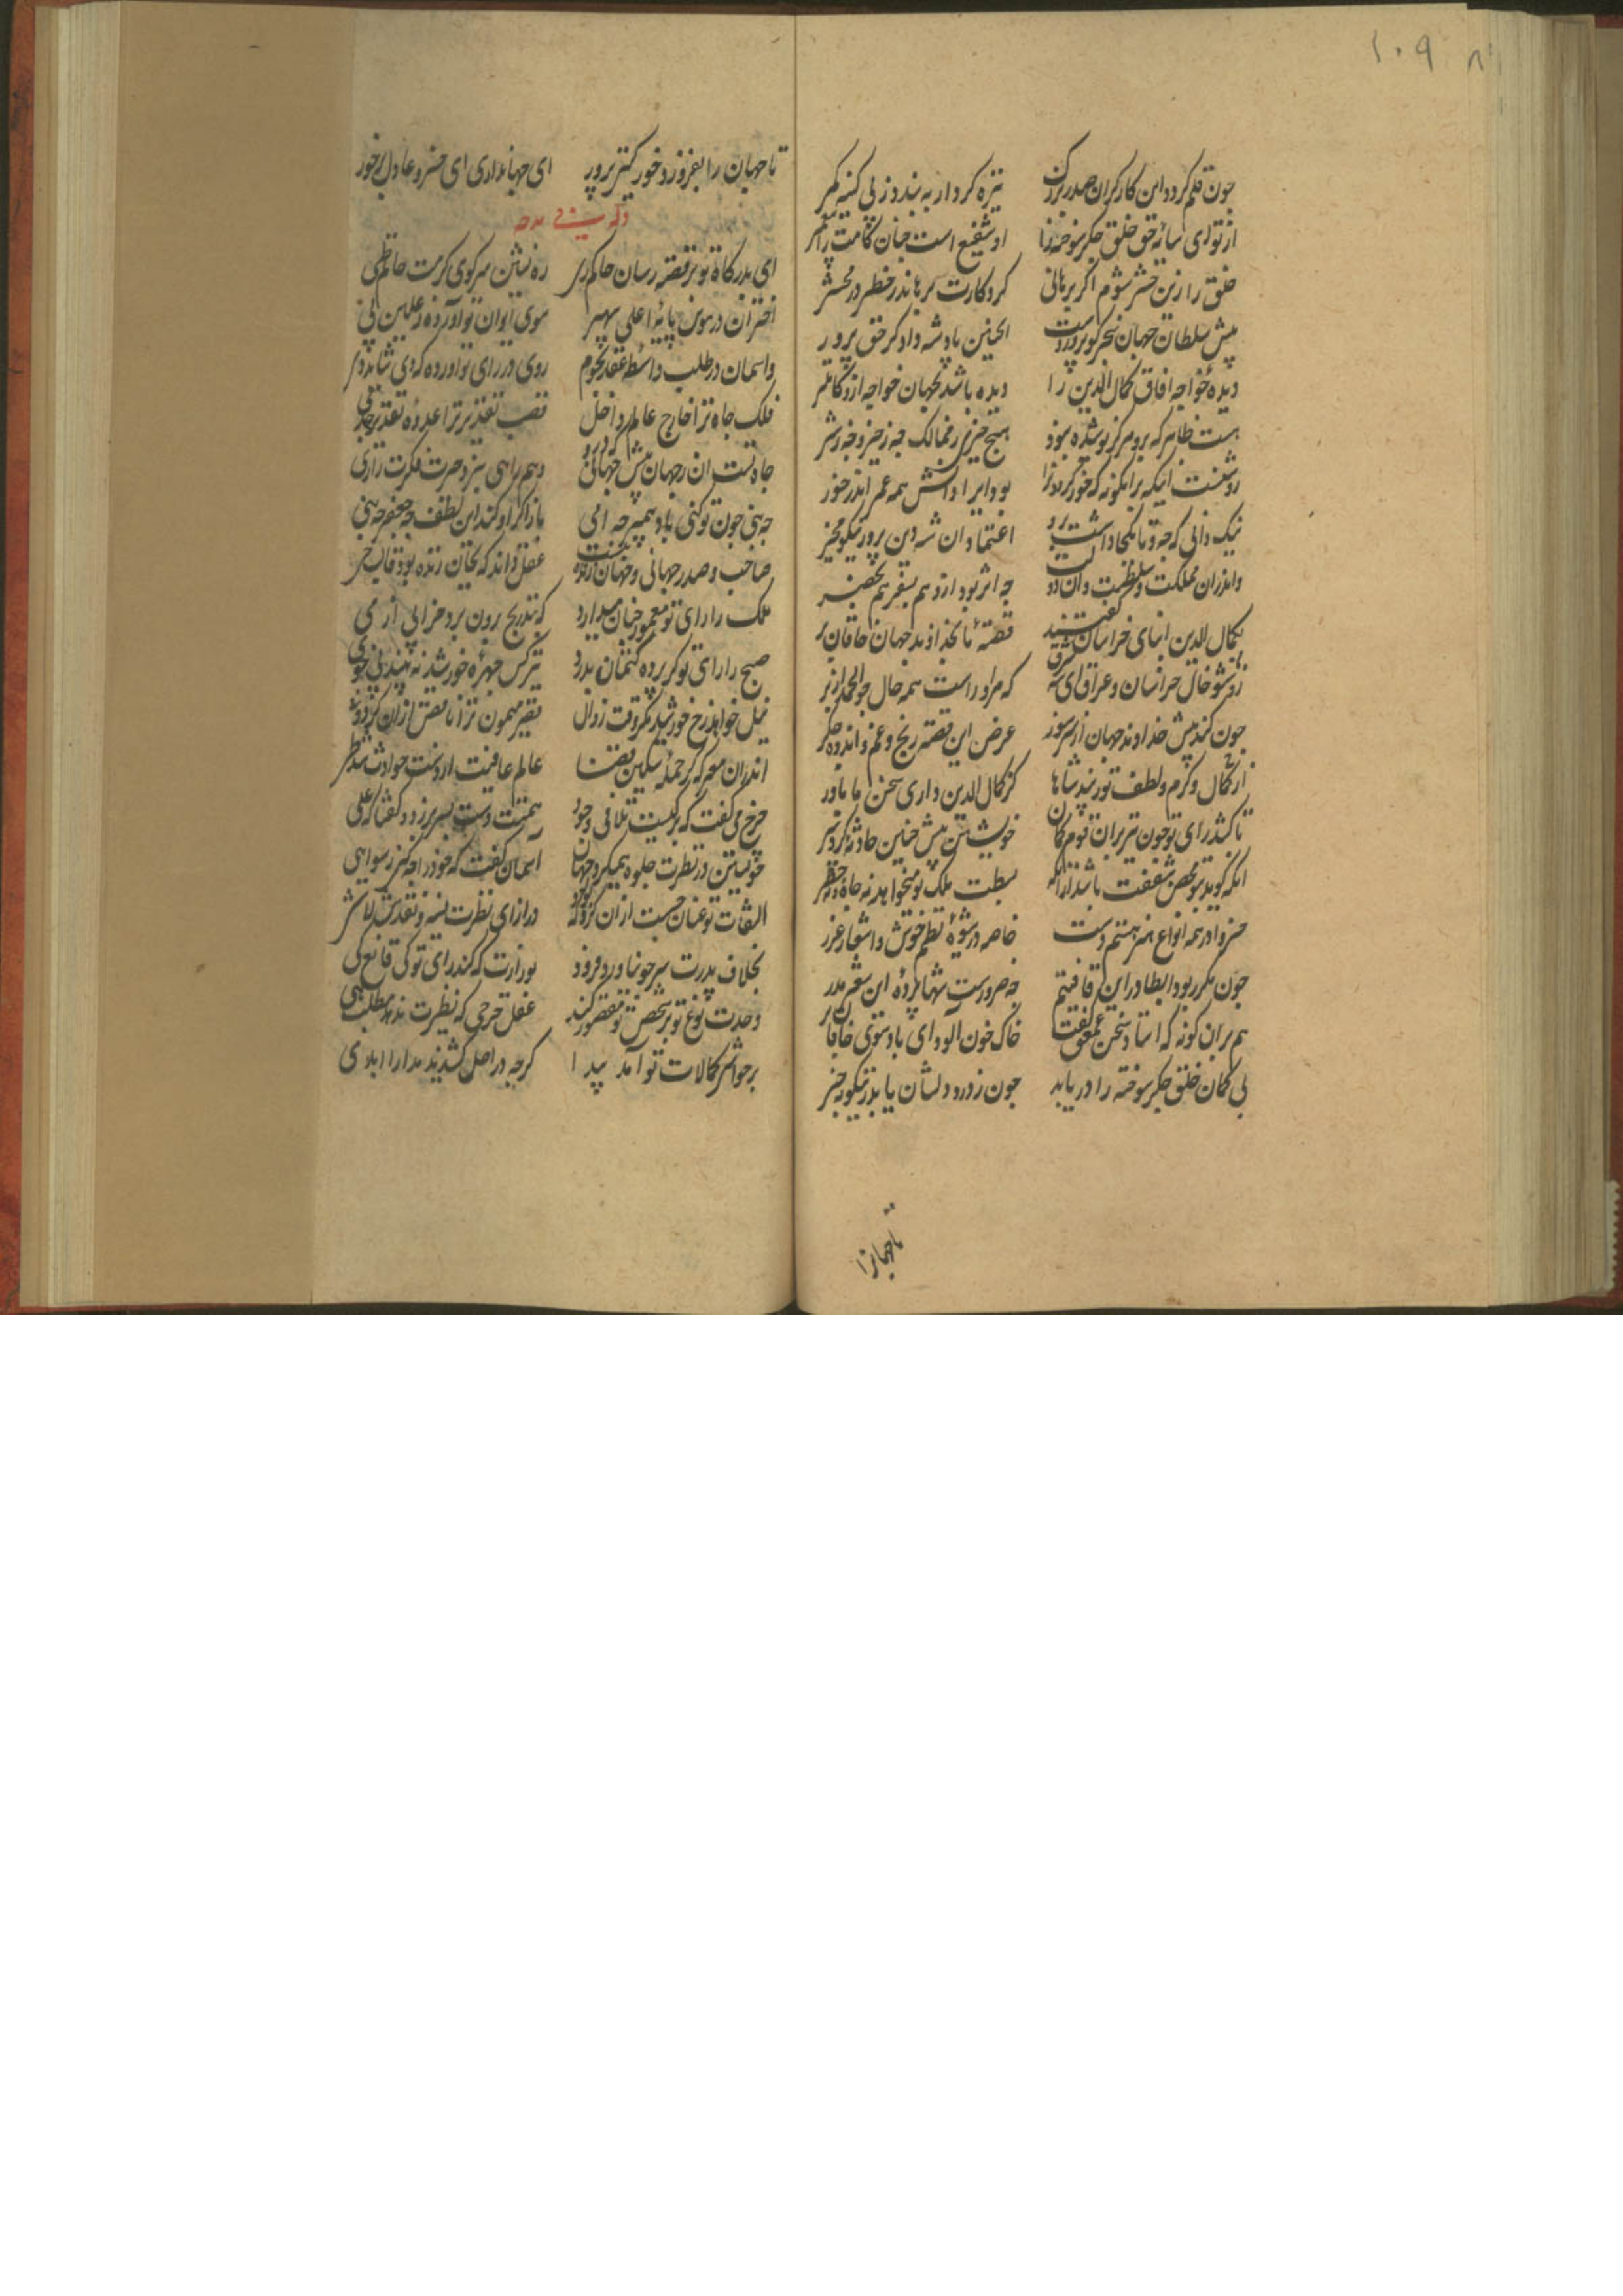 ۱۰۹
چون قلم کرد و این کار کران صدر بزرک نیزه کردار به بندد ز پی کینه کمر
از تو ای سایه حق خلق جکر سوخته را او شفیع است چنان کامت را
خلق را زین حشر شوم اکر برهانی کردکارت برهاند ز خطر در محشر
پیش سلطان جهان سنجر کو پروردت ای چنین پادشه دادکر حق پرور
دیده خواجه افاق کمال الدین را دیده باشد بجهان خواجه ازو کاملتر
هست ظاهر که برو هرکز پوشیده نبود هیچ چیزی ز ممالک چه ز خیر و چه ز شر
روشنست اینکه برانکونه که خور کردونرا بود ایرا دانش همه عمر اندر خور
نیک دانی که چه و تا بکجا داشت برو اعتماد ان شه دین پرور نیکو محضر
واندران مملکت و سلطنت وان دولت چه اثر بود ازو هم بسفر هم بحضر
بکمال الدین ابنای خراسان کفتند قصه ما بخداوند جهان خاقان بر
چون کند پیش خداوند جهان از سر سوز عرض این قصه رنج و غم و اندوه جکر
از کمال و کرم و لطف تو زیبد شاها کز کمال الدین داری سخن ما باور
زو شنو حال خراسان و عراق ای شه شرق که مر او راست همه حال چو الحمد از بر
تا کشد رای تو چون تیر بران قوم کمان خویشتن پیش چنین حادثه کرد سپر
انکه کوید تو محض شفقت باشد ازانکه بسطت ملک تو میخواهد نه جاه و خطر
خسروا در همه انواع هنر هستم دست خاصه در شیوه نظم خوش و اشعار غرر
چون مکرر بود ایطا در این قافیتم چه ضرورست شها پرده این شعر مدر
هم بران کونه که استاد سخن عمعق کفت خاک خون الود ای باد بسوی خاقان بر
بی کمان خلق جکر سوخته را دریابد چون ز درد دلشان یابد زینکونه خبر
تا جهانرا
تا جهان را بفروزد خور کیتی پرور ای جهانداری ای خسرو عادل بر خور
وله فی مدحه
ای بدرکاه تو بر قصه رسان حاکم ری ره نشین سر کوی کرمت حاتم طی
اختران در هوس پایه اعلی سپهر سوی ایوان تو آورده ز علیین پی
واسمان در طلب واسطه عقد نجوم روی در رای تو اورده که ای شاید وی
فلک جاه ترا خارج عالم داخل قصب تقدیر ترا عهده تقدیر
جاه تست ان جهان بیش وهم راهی سر و حیرت فکرت رازی
چه نبی چون تو کنی باد همیبر چه امی باز اکر او کند این لطف چه معجم چه نبی
صاحب و صدر جهانی و جهان زنده عقل داند که بجان زنده بود قالب حی
ملک را رای تو معمور چنان میدارد که بتدریج برون برد خرابی از می
صبح را رای تو کر پرده کتمان بدرد نیز کس چهره خورشید نه بیند بی خوی
نیل خواهد رخ خورشید مکر وقت زوال نقیر میمون ترا تا نقص ازان کردد
اندران معرکه کز حمله سکین قضا عالم عافیت از دست حوادث شد طی
چرخ می کفت که بر کیست تلافی وجود همتت دست بسر برزد و کفتا که علی
خویشتن در نظرت جلوه همیکرد جهان اسمان کفت که خود را چه کنی رسوا هی
التفات تو عنان جست ازان کرد که در ازای نظرت نسیه و نقدش لا شی
بخلاف پدرت سر چو نیاورد فرود بوزارت که کند رای تو کی قانع کی
وحدت نوع تو بر شخص تو مقصور کند عقل خرجی که نظیرت ند
بر حواشی کمالات تو آمد پیدا کرچه در اصل کشیدند مدارا ابدی